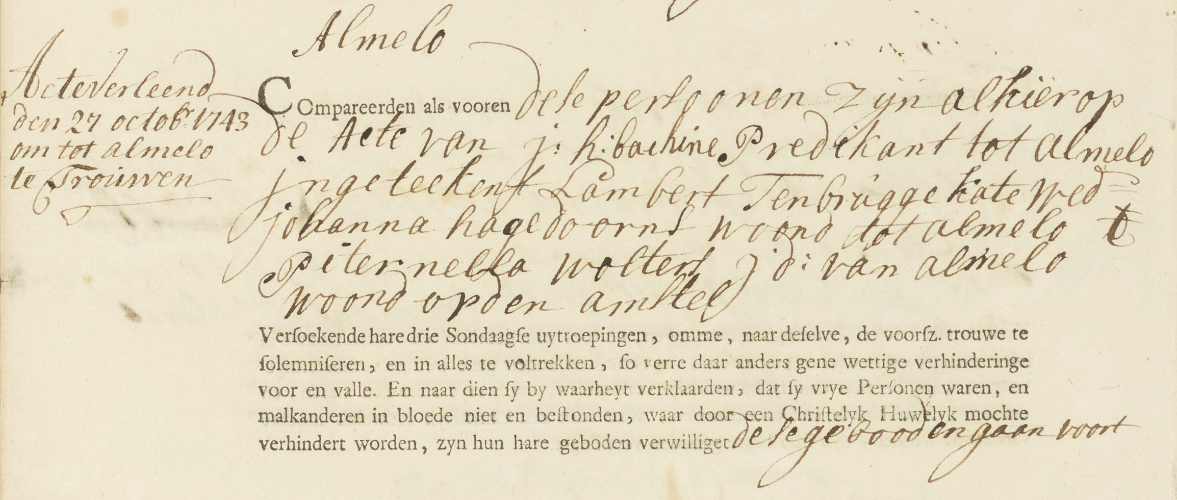 Almelo
Acte verleend
den 27 octobr. 1743
om tot almelo
te Trouwen
Compareerden als vooren dese persoonen zyn alhier op
de Acte van j: h: bachine Predikant tot almelo
jngeteekent Lambert Tenbrugge kate wed=
johanna hagedoorns woond tot almelo &
Piternella wolters j: d: van almelo
woond op den amstel
Versoekende hare drie Sondaagse uytroepingen, omme, naar deselve, de voorsz. trouwe te
solemniseren, en in alles te voltrekken, so verre daar anders gene wettige verhinderinge
voor en valle. En naar dien sy by waarheyt verklaarden, dat sy vrye Personen waren, en
malkanderen in bloede niet en bestonden, waar door een Christelyk Huwelyk mochte
verhindert worden, zyn hun hare geboden verwilliget dese gebooden gaan voort